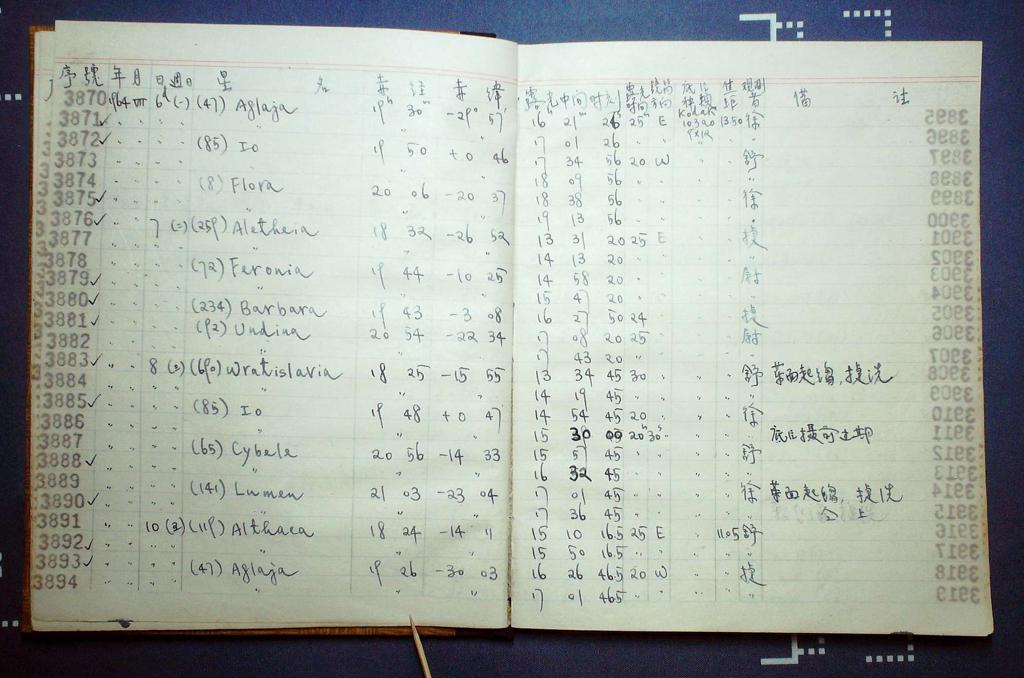 序號 年 月 日 週日 星 名 赤 經 赤 緯 露光中間時刻 露光時間 底片種類 焦距 觀測者 備 註
3870 1964 VII 6 (一) (47) Aglaja 19 30 -29 57 16 21 26 25 E Kodak 103aO 1350 徐
3871 " " " " " " 17 01 26 " "
3872 " " " (85) Io 19 50 +0 46 17 34 56 20 W " 舒
3873 " " " " " " 18 09 56 " "
3874 " " " (8) Flora 20 06 -20 37 18 38 56 " 徐
3875 " " " " " " 19 13 56 " "
3876 " " 7 (二) (259) Aletheia 18 32 -26 52 13 31 20 25 E 
3877 " " " " " " 14 13 20 " "
3878 " " " (72) Feronia 19 44 -10 25 14 58 20 " 尉
3879 " " " " " " 15 47 20 " "
3880 " " " (234) Barbara 19 43 -3 08 16 27 50 24 "
3881 " " " (92) Undina 20 54 -22 34 17 08 20 25 " 尉
3882 " " " " " " 17 43 20 " "
3883 " " 8 (690) Wratislavia 18 25 -15 55 13 34 45 30 " 舒
3884 " " " " " " 14 19 45 " "
3885 " " " (85) Io 19 48 +0 47 14 54 45 20 " 徐
3886 " " " " " " 15 30 09 20 30 " 底片攝
3887 " " " (65) Cybele 20 56 -14 33 15 57 45 " 舒
3888 " " " " " " 16 32 45 " "
3889 " " " (141) Lumen 21 03 -23 04 17 01 45 " 徐
3890 " " " " " " 17 36 45 " " 仝上
3891 " " 10 (119) Althaea 18 24 -14 11 15 10 16.5 25 E 1105 舒
3892 " " " " " " 15 50 16.5 " "
3893 " " " (47) Aglaja 19 26 -30 03 16 26 46.5 20 W "
3894 " " " " " " 17 01 46.5 " "
3895
3896
3897
3898
3899
3900
3901
3902
3903
3904
3905
3906
3907
3908
3909
3910
3911
3912
3913
3914
3915
3916
3917
3918
3919